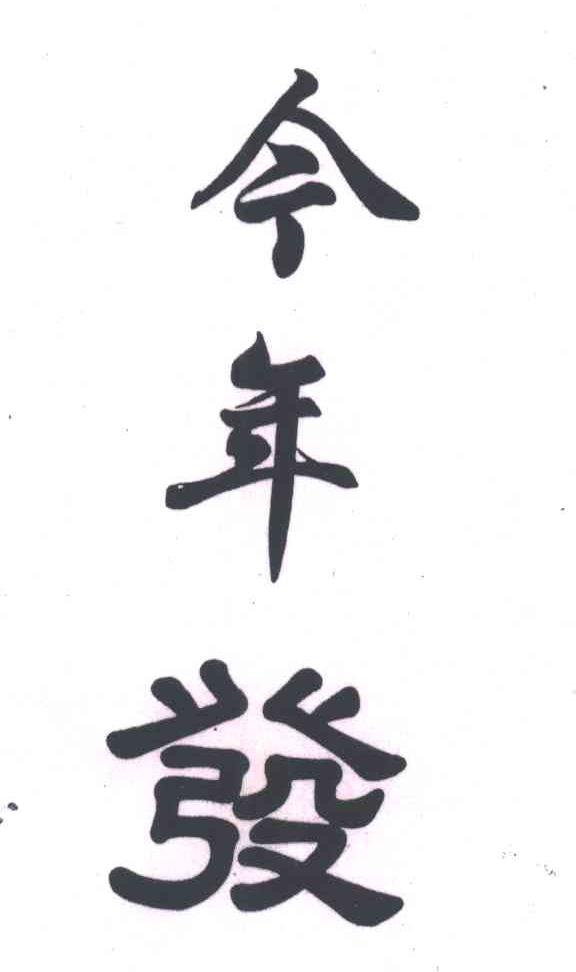 今年發